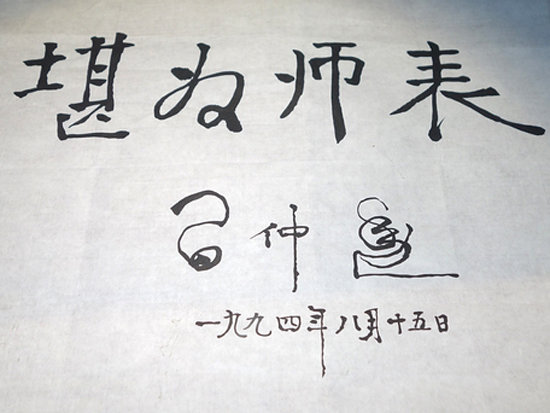 堪为师表
仲
一九九四年八月十五日